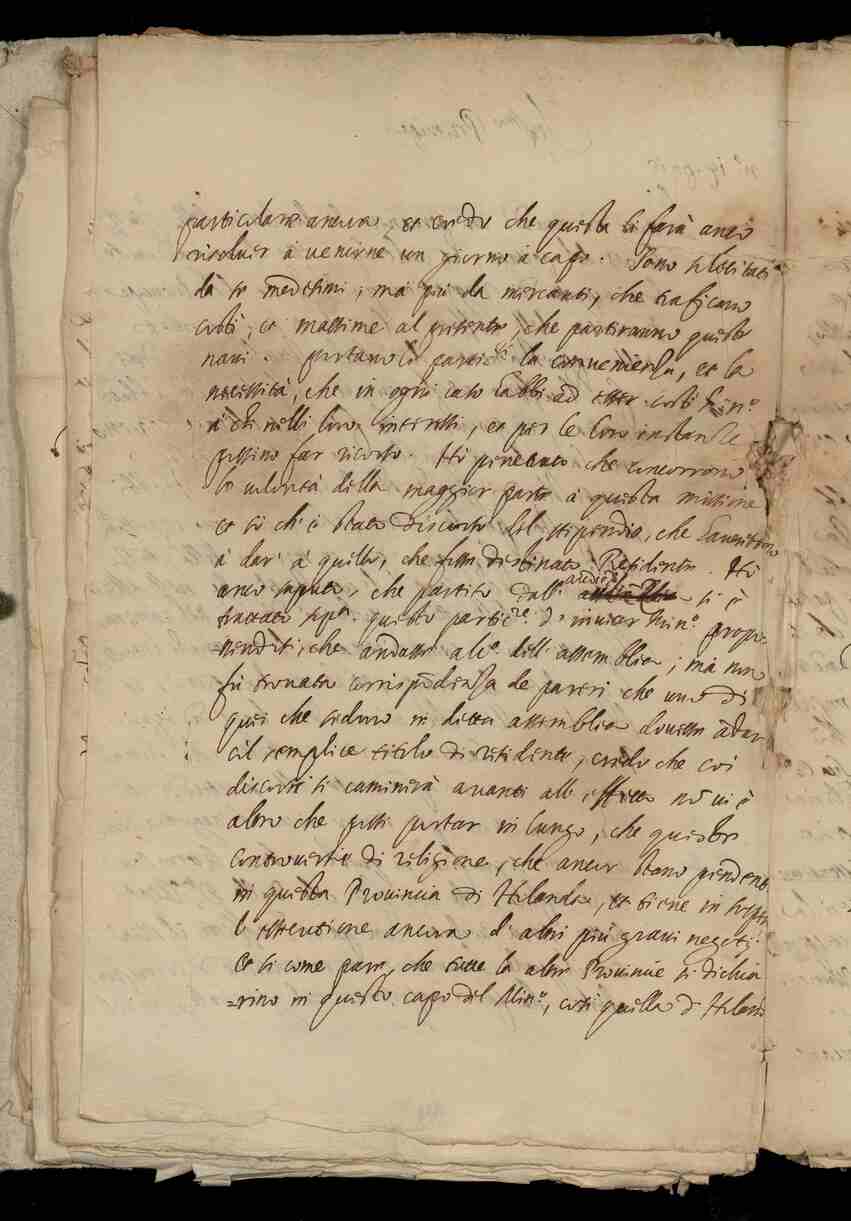 particolare ancora, et credo che questa li farà anco
risolver à venirne un giorno à capo. Sono sollecitati
da se medesimi, mà più da mercanti, che traficano
costì, et massime al presente, che partiranno queste
navi. portano li parti.ri la convenienza, et la
necessità, che in ogni caso habbi ad esser costì Min.o
à chi nelli loro interessi, et per le loro instanze
possino far ricorso. Hò penetrato che concorrono
le volontà della maggior parte à questa missione
et sò ch'è stato discorso del stipendio, che
à dar' à quello, che fosse destinato Residente. Hò
anco saputo, che partito dall' audienza si è
trattato sop.a questo partic.re d'inviar Min.o
che andasse alc.o dell' assemblea; mà non
fù trovata corrispõdenza de pareri che uno di
quei che sedono in detta assemblea dovesse andar
col semplice titolo di residente, credo che coi
discorsi si caminerà avanti all' effetto nõ vi è
altro che possi portar in lungo, che queste
controversie di religione, che ancor stano pendenti
in questa Provincia di Hollanda, et tiene in
l'essecutione ancora d'altri più gravi negotij.
Et si come pare, che tutte le altre Provincie si dichia
=rino in questo capo del Min.o, così quella d'Holand